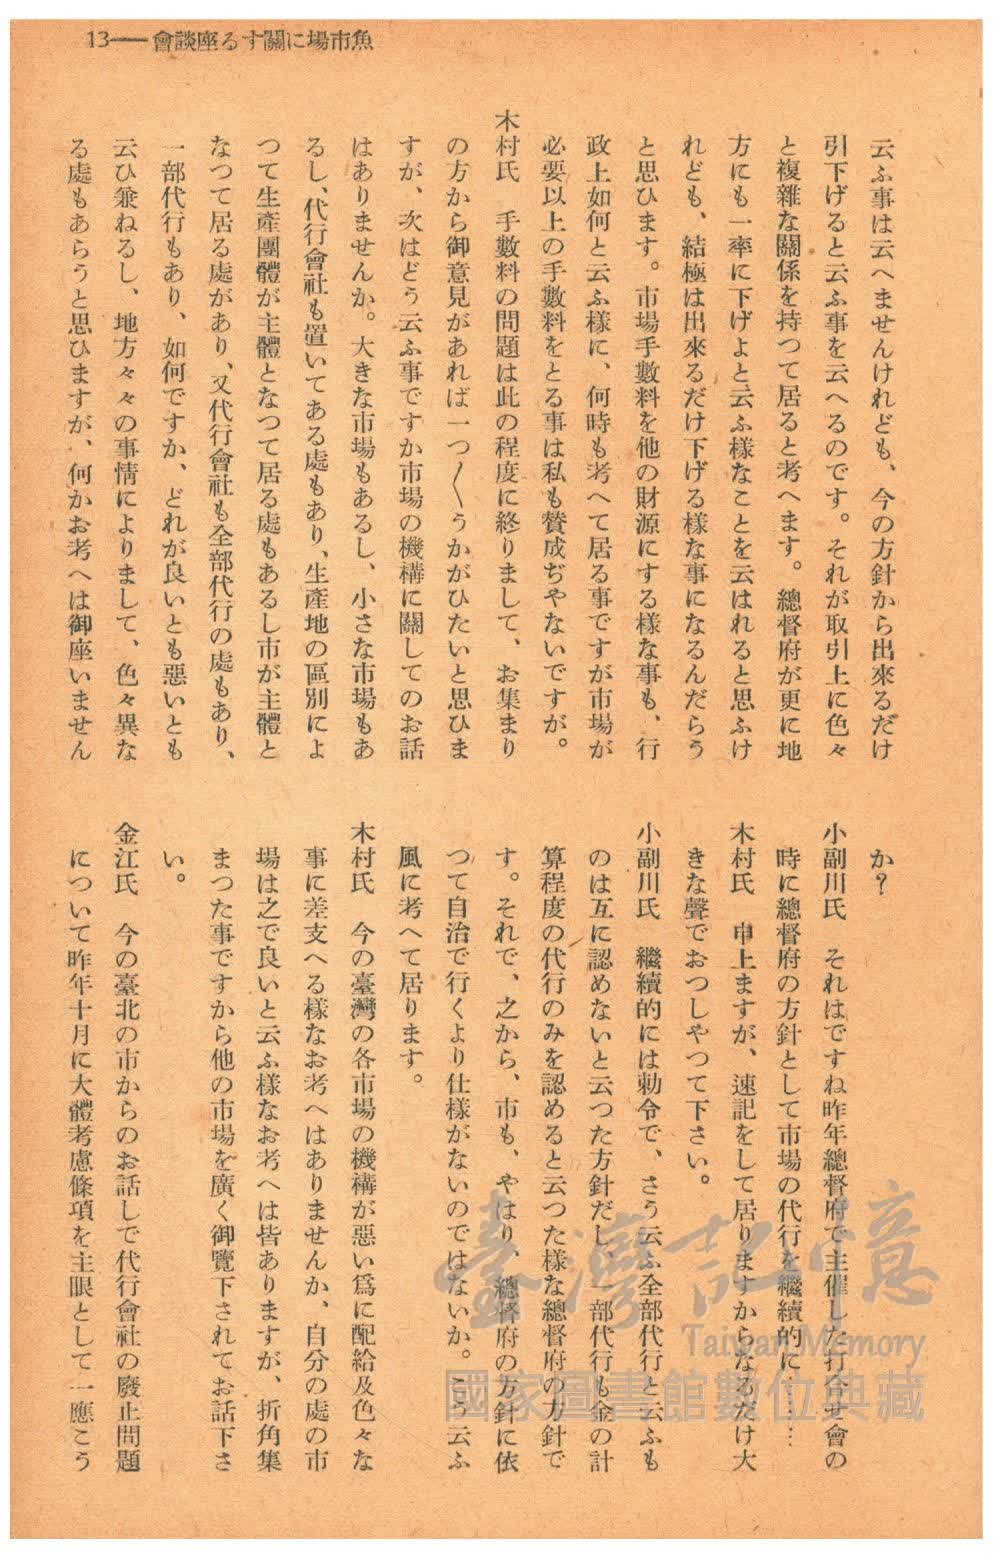 魚市場に關する座談會――13
云ふ事は云へませんけれども、今の方針から出來るだけ
引下げると云ふ事を云へるのです。それが取引上に色々
と複雜な關係を持つて居ると考へます。總督府が更に地
方にも一率に下げよと云ふ樣なことを云はれると思ふけ
れども、結極は出來るだけ下げる樣な事になるんだらう
と思ひます。市場手數料を他の財源にする樣な事も、行
政上如何と云ふ樣に、何時も考へて居る事ですが市場が
必要以上の手數料をとる事は私も贊成ぢやないですが。
木村氏　手數料の問題は此の程度に終りまして、お集まり
の方から御意見があれば一つ〳〵うかがひたいと思ひま
すが、次はどう云ふ事ですか市場の機構に關してのお話
はありませんか。大きな市場もあるし、小さな市場もあ
るし、代行會社も置いてある處もあり、生產地の區別によ
つて生產團體が主體となつて居る處もあるし市が主體と
なつて居る處があり、又代行會社も全部代行の處もあり、
一部代行もあり、如何ですか、どれが良いとも惡いとも
云ひ兼ねるし、地方々々の事情によりまして、色々異な
る處もあらうと思ひますが、何かお考へは御座いません
か？
小副川氏　それはですね昨年總督府で主催した打合せ會の
時に總督府の方針として市場の代行を繼續的に……
木村氏　申上ますが、速記をして居りますからなるだけ大
きな聲でおつしやつて下さい。
小副川氏　繼續的には勅令で、さう云ふ全部代行と云ふも
のは互に認めないと云つた方針だし、一部代行も金の計
算程度の代行のみを認めると云つた樣な總督府の方針で
す。それで、之から、市も、やはり、總督府の方針に依
つて自治で行くより仕樣がないのではないか。こう云ふ
風に考へて居ります。
木村氏　今の臺灣の各市場の機構が惡い爲に配給及色々な
事に差支へる樣なお考へはありませんか、自分の處の市
場は之で良いと云ふ樣なお考へは皆ありますが、折角集
まつた事ですから他の市場を廣く御覽下されてお話下さ
い。
金江氏　今の臺北の市からのお話しで代行會社の廢止問題
について昨年十月に大體考慮條項を主眼として一應こう
臺灣記憶
Taiwan Memory
國家圖書館數位典藏